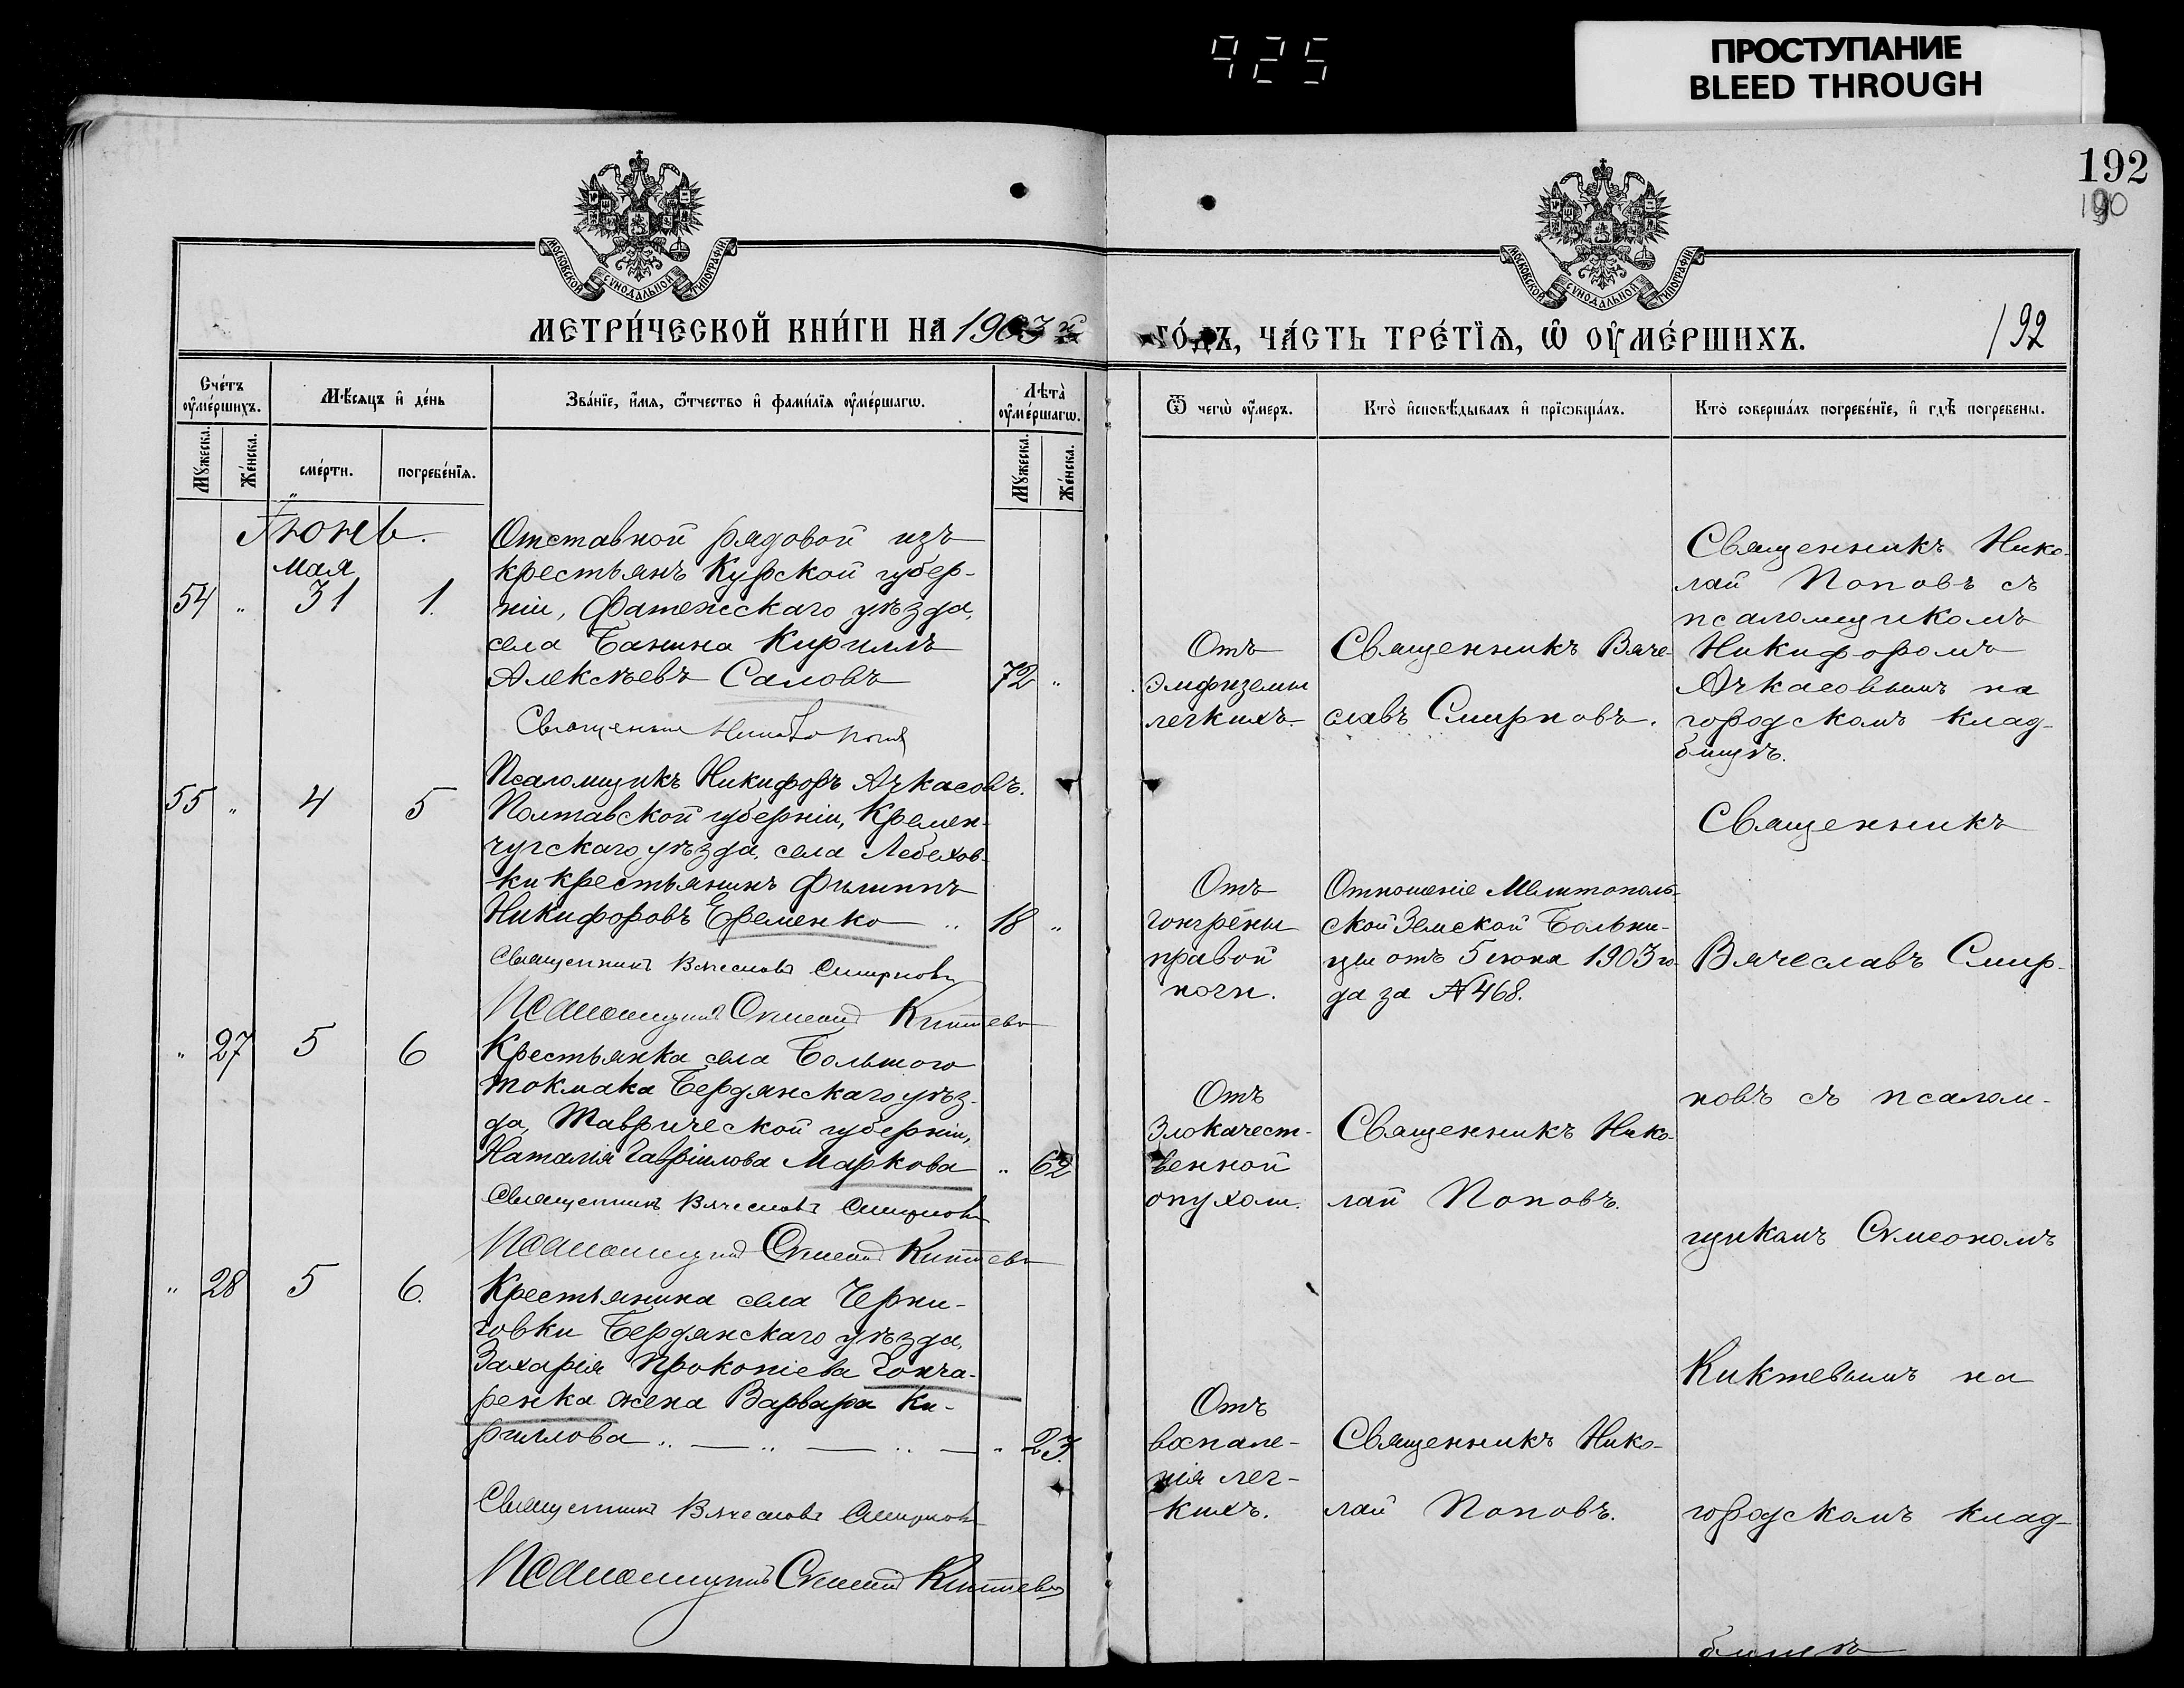 925
ПРОСТУПАНИЕ
BLEED THROUGH
192
190
МОСКОВСКОЙ СѴНОДАЛЬНОЙ ТИПОГРАФІИ
МОСКОВСКОЙ СѴНОДАЛЬНОЙ ТИПОГРАФІИ
МЕТРИ́ЧЕСКОЙ КНИ́ГИ НА 1903 й
ГО́ДЪ, ЧА́СТЬ ТРЕ́ТЇѦ, Ѡ ОУ҆МЕ́РШИХЪ.
192
Сче́тъ
оу҆ме́ршихъ.
Мꙋ́жеска.
Же́нска.
Мѣ́сѧцъ и҆ де́нь
сме́рти.
погребе́нїѧ.
Зва́нїе, и҆́мѧ, ѻ҆́тчество и҆ фами́лїѧ оу҆ме́ршагѡ.
Лѣ́та
оу҆ме́ршагѡ.
Мꙋ́жеска.
Же́нска.
Ѿ чегѡ̀ оу҆́меръ.
Кто̀ и҆сповѣ́дывалъ и҆ прїѡбща́лъ.
Кто̀ соверша́лъ погребе́нїе, и҆ гдѣ̀ погребены.
Іюнь.
мая
54 " 31 1.
Отставной рядовой изъ
крестьянъ Курской губер-
ніи, Фатежскаго уѣзда,
села Банина Кириллъ
Алексѣевъ Саловъ 72 "
Отъ
эмфиземы
легкихъ.
Священникъ Вяче-
славъ Смирновъ.
Священникъ Нико-
лай Поповъ съ
псаломщикомъ
Никифоромъ
Ачкасовымъ на
городскомъ клад-
бищѣ.
Псаломщикъ Никифоръ Ачкасовъ.
55 " 4 5
Полтавской губерніи, Кремен-
чугскаго уѣзда, села Лебехов-
ки крестьянинъ Филиппъ
Никифоровъ Еременко 18 "
Священникъ Вячеславъ Смирновъ
Псаломщикъ Сѵмеонъ Киктевъ
Отъ
гонгрены
правой
ноги.
Отношеніе Мелитополь-
ской Земской Больни-
цы отъ 5 іюня 1903 го-
да за № 468.
" 27 5 6
Крестьянка села Большого
Токмака Бердянскаго уѣз-
да, Таврической губерніи,
Наталія Гавріилова Маркова " 62
Священникъ Вячеславъ Смирновъ
Псаломщикъ Сѵмеонъ Киктевъ
Отъ
злокачест-
венной
опухоли.
Священникъ Нико-
лай Поповъ.
" 28 5 6.
Крестьянина села Черни-
говки Бердянскаго уѣзда,
Захарія Прокопіева Гонча-
ренка жена Варвара Ки-
риллова " 23.
Священникъ Вячеславъ Смирновъ
Псаломщикъ Сѵмеонъ Киктевъ
Отъ
воспале-
нія лег-
кихъ.
Священникъ Нико-
лай Поповъ.
Священникъ
Вячеславъ Смир-
новъ съ псалом-
щикомъ Сѵмеономъ
Киктевымъ на
городскомъ клад-
бищѣ